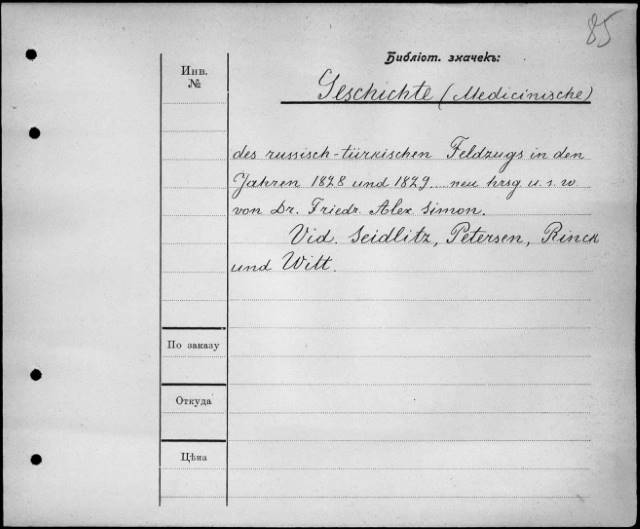 85
Библіот. значекъ:
Инв.
№
Geschichte (Medicinische)
des russisch-türkischen Feldzugs in den
Jahren 1828 und 1829 neu hrsg u. s. w.
von Dr. Friedr. Alex. Simon.
Vid. Seidlitz, Petersen, Rinck
und Witt.
По заказу
Откуда
Цѣна